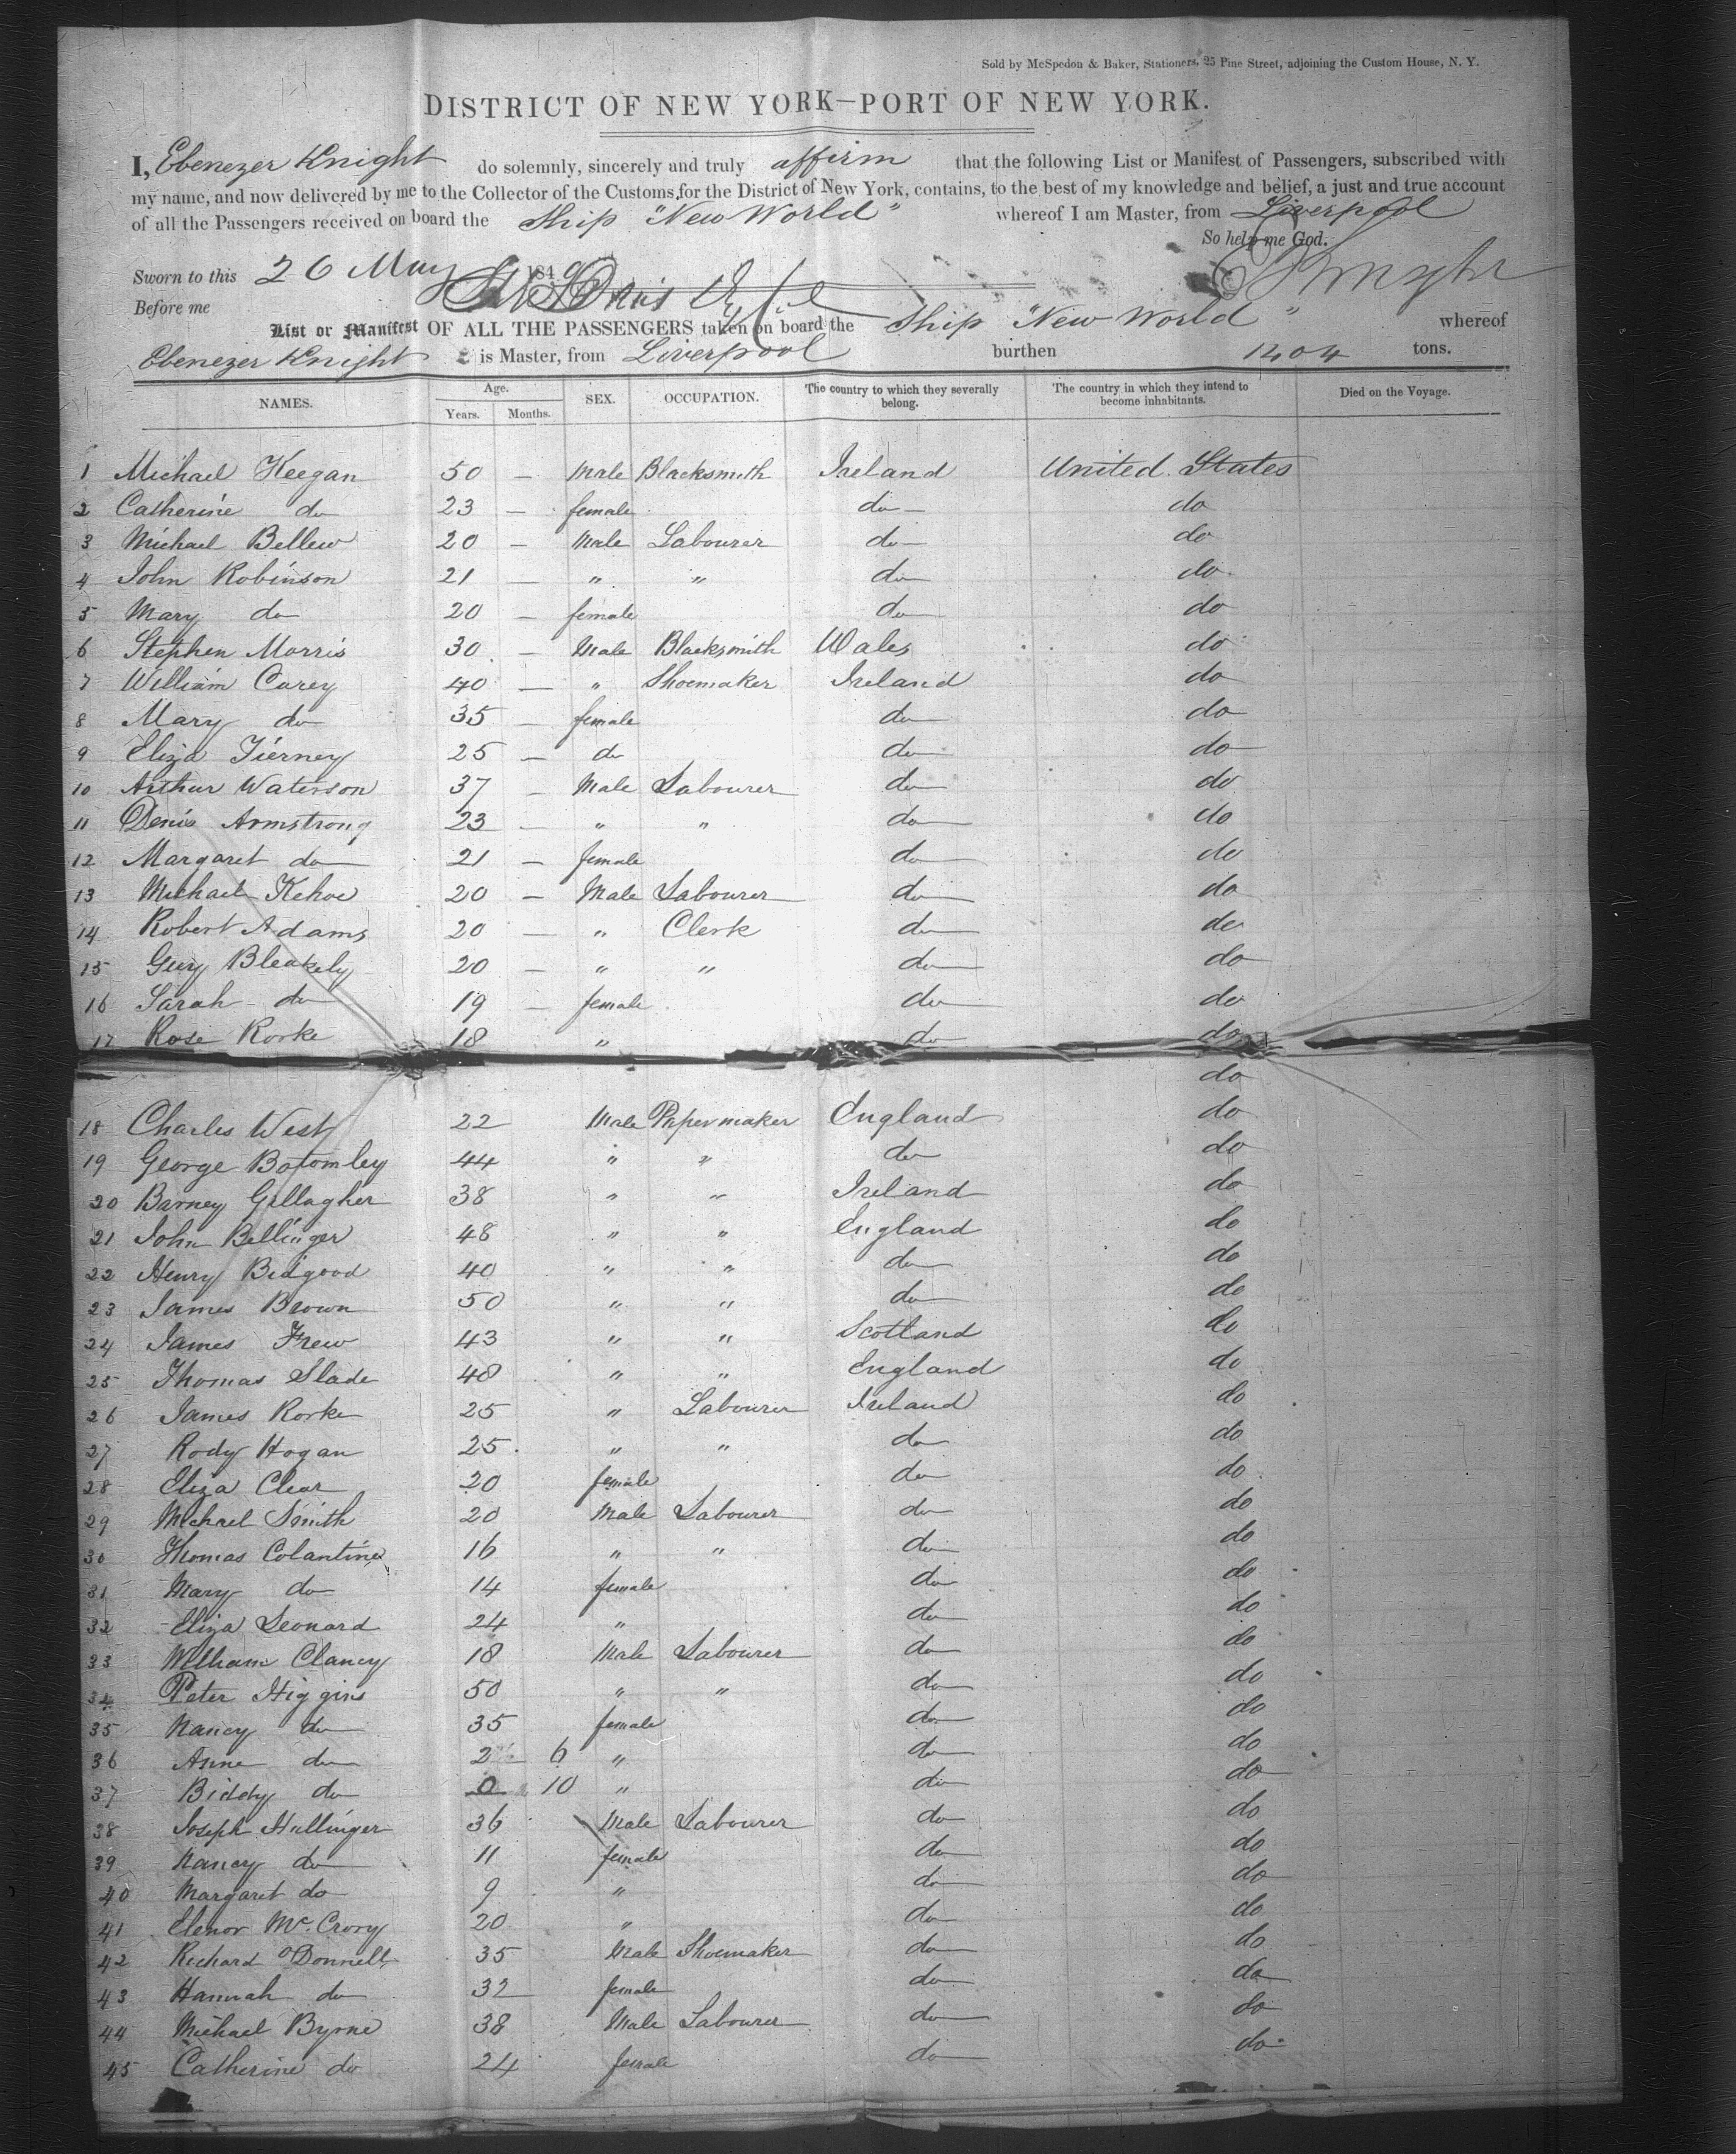 Sold by McSpedon & Baker, Stationers, 25 Pine Street, adjoining the Custom House, N. Y.
DISTRICT OF NEW YORK—PORT OF NEW YORK.
I, Ebenezer Knight do solemnly, sincerely and truly affirm that the following List or Manifest of Passengers, subscribed with
my name, and now delivered by me to the Collector of the Customs for the District of New York, contains, to the best of my knowledge and belief, a just and true account
of all the Passengers received on board the Ship "New World" whereof I am Master, from Liverpool
So help me God.
Sworn to this 26 May 1849 E Knight
Before me
List or Manifest OF ALL THE PASSENGERS taken on board the Ship "New World" whereof
Ebenezer Knight is Master, from Liverpool burthen 1404 tons.
NAMES. Age. Years. Months. SEX. OCCUPATION. The country to which they severally belong. The country in which they intend to become inhabitants. Died on the Voyage.
1 Michael Keegan 50 — Male Blacksmith Ireland United States
2 Catherine do 23 — female do do
3 Michael Bellew 20 — Male Labourer do do
4 John Robinson 21 — " " do do
5 Mary do 20 — female do do
6 Stephen Morris 30 — Male Blacksmith Wales do
7 William Carey 40 — " Shoemaker Ireland do
8 Mary do 35 — female do do
9 Eliza Tierney 25 — do do do
10 Arthur Waterson 37 — Male Labourer do do
11 Denis Armstrong 23 — " " do do
12 Margaret do 21 — female do do
13 Michael Kehoe 20 — Male Labourer do do
14 Robert Adams 20 — " Clerk do do
15 Bleakely 20 — " " do do
16 Sarah do 19 — female do do
17 Rose Rorke 18 " do do
do
18 Charles West 22 Male Papermaker England do
19 George Botomley 44 " " do do
20 Barney Gallagher 38 " " Ireland do
21 John Bellinger 48 " " England do
22 Henry Bidgood 40 " " do do
23 James Brown 50 " " do do
24 James Frew 43 " " Scotland do
25 Thomas Slade 48 " " England do
26 James Rorke 25 " Labourer Ireland do
27 Rody Hogan 25 " " do do
28 Eliza Clear 20 female do do
29 Michael Smith 20 Male Labourer do do
30 Thomas Colantine 16 " " do do
31 Mary do 14 female do do
32 Eliza Leonard 24 " do do
33 William Clancy 18 Male Labourer do do
34 Peter Higgins 50 " " do do
35 Nancy do 35 female do do
36 Anne do 2 6 " do do
37 Biddy do 0 10 " do do
38 Joseph Hullinger 36 Male Labourer do do
39 Nancy do 11 female do do
40 Margaret do 9 " do do
41 Elenor McCrory 20 " do do
42 Richard O'Donnell 35 Male Shoemaker do do
43 Hannah do 32 female do do
44 Michael Byrne 38 Male Labourer do do
45 Catherine do 24 female do do